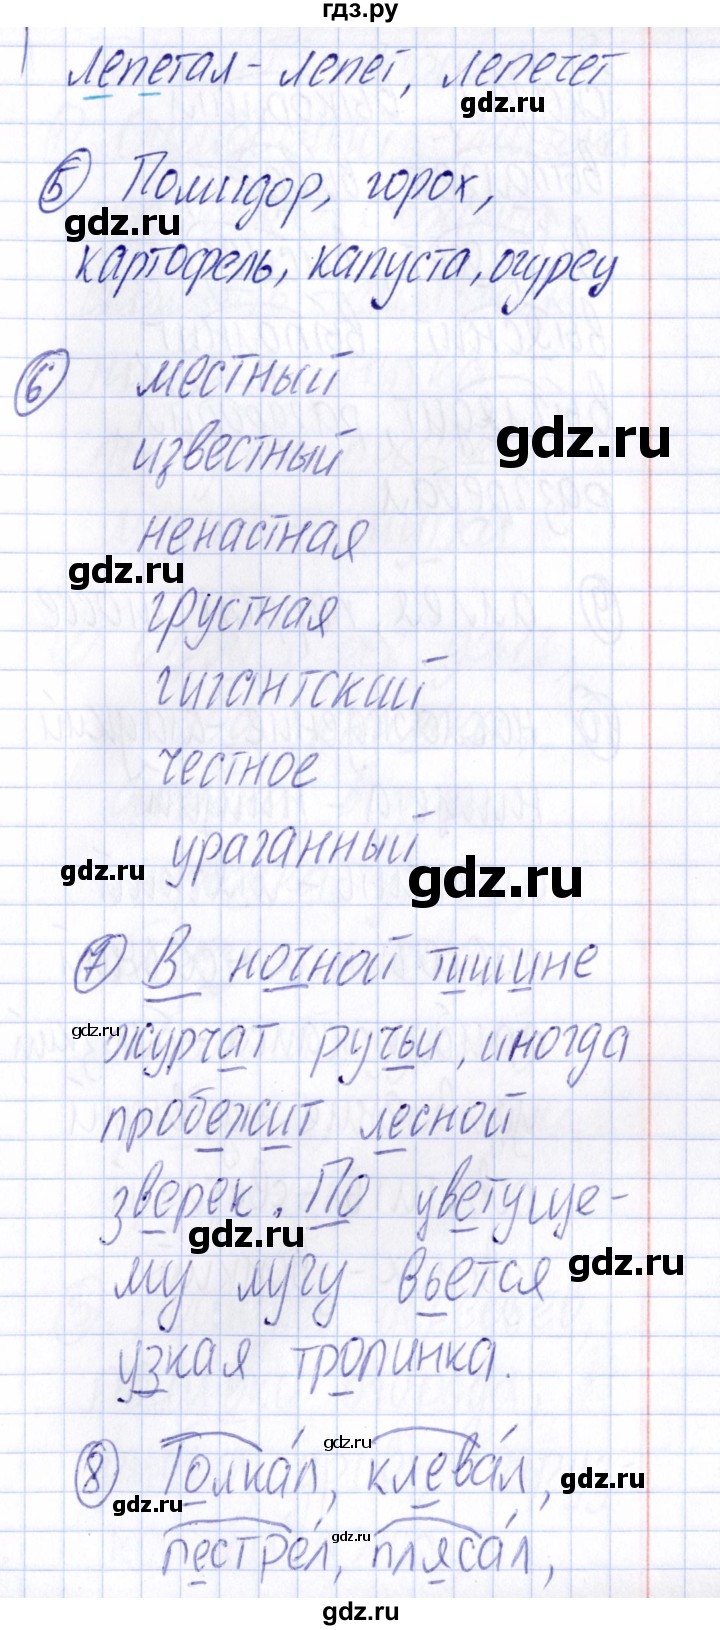 гдз.ру
лепетал - лепет, лепечет
gdz.ru
5 Помидор, горох,
gdz.ru
картофель, капуста, огурец
6 местный
gdz.ru
известный
ненастная
gdz.ru
грустная
гигантский
честное
ураганный
gdz.ru
gdz.ru
7 В ночной тишине
gdz.ru
журчат ручьи, иногда
пробежит лесной
зверек. По цветуще-
gdz.ru
gdz.ru
му лугу вьется
узкая тропинка.
gdz.ru
8 Толка́л, клева́л,
gdz.ru
gdz.ru
gdz.ru
пестре́л, пляса́л,
gdz.ru